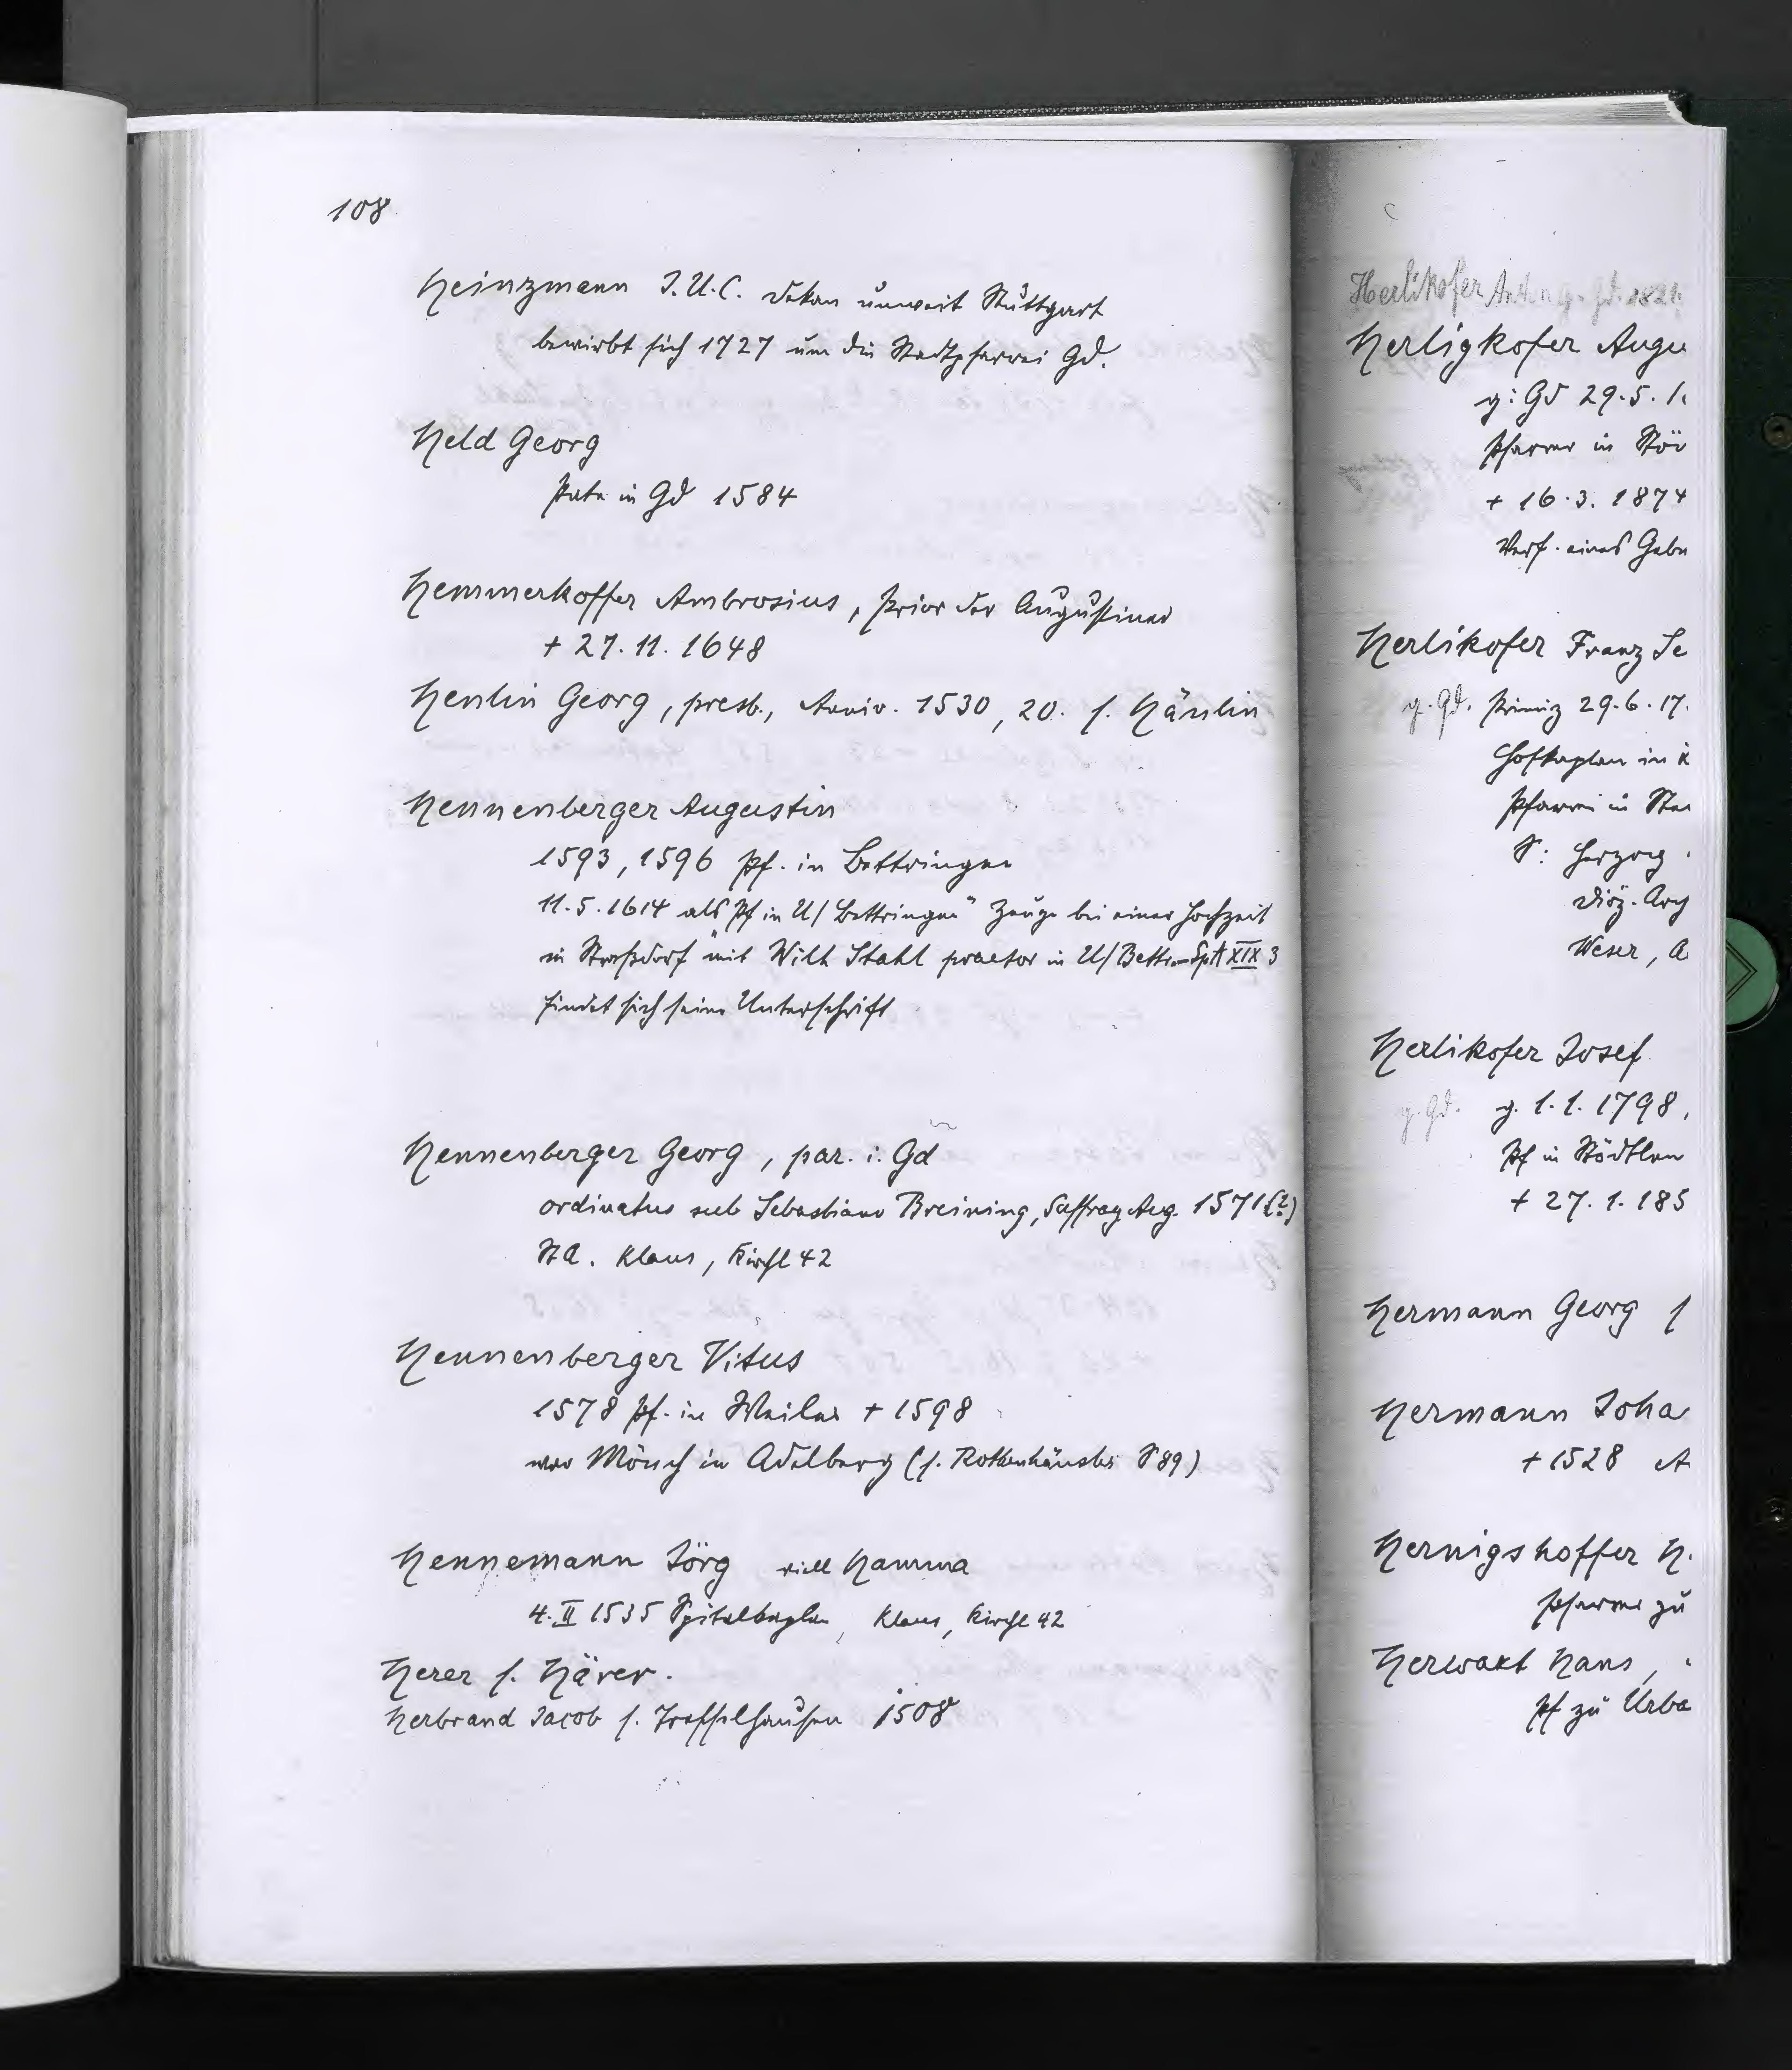 108
Heinzmann J.U.C. Dekan unweit Stuttgart
bewirbt sich 1727 um die Stadtpfarrei Gd.
Held Georg
Pate in Gd 1584
Hemmerkoffer Ambrosius, Prior der Augustiner
+ 27.11.1648
Henlin Georg, presb., Anniv. 1530, 20. s. Hänlin
Hennenberger Augustin
1593, 1596 Pf. in Bettringen
11.5.1614 als Pf in U/Bettringen" Zeuge bei einer Hochzeit
in Straßdorf "mit Wilh Stahl praetor in U/Bettr. SptA XIX 3
findet sich seine Unterschrift
Hennenberger Georg, par. i. Gd
ordinatus sub Sebastiano Breining, Suffrag Aug. 1571 (?)
StA. Klaus, Kirchl 42
Hennenberger Vitus
1578 Pf. in Weiler + 1598
war Mönch in Adelberg (s. Rothenhäusler S 89)
Hennemann Jörg viell Hamma
4.II 1535 Spitalkaplan, Klaus, Kirchl 42
Herer s. Härer.
Herbrand Jacob s. Treffelhausen 1508
Herlikofer Anton g. Gd. 1821
Herligkofer Augu
g: Gd 29.5.1
Pfarrer in Stöd
+ 16.3.1874
Verf. eines Gebe
Herlikofer Franz Se
g. Gd. Primiz 29.6.17.
Hofkaplan in
Pfarrei in
S: Herzog
Diöz. Arch
Weser, A
Herlikofer Josef
g. Gd. g. 1.1.1798,
Pf in Stödtlen
+ 27.1.185
Hermann Georg s
Hermann Joha
+ 1528 A
Hernigshoffer H.
Pfarrer zu
Herwart Hans,
Pf zu Urba